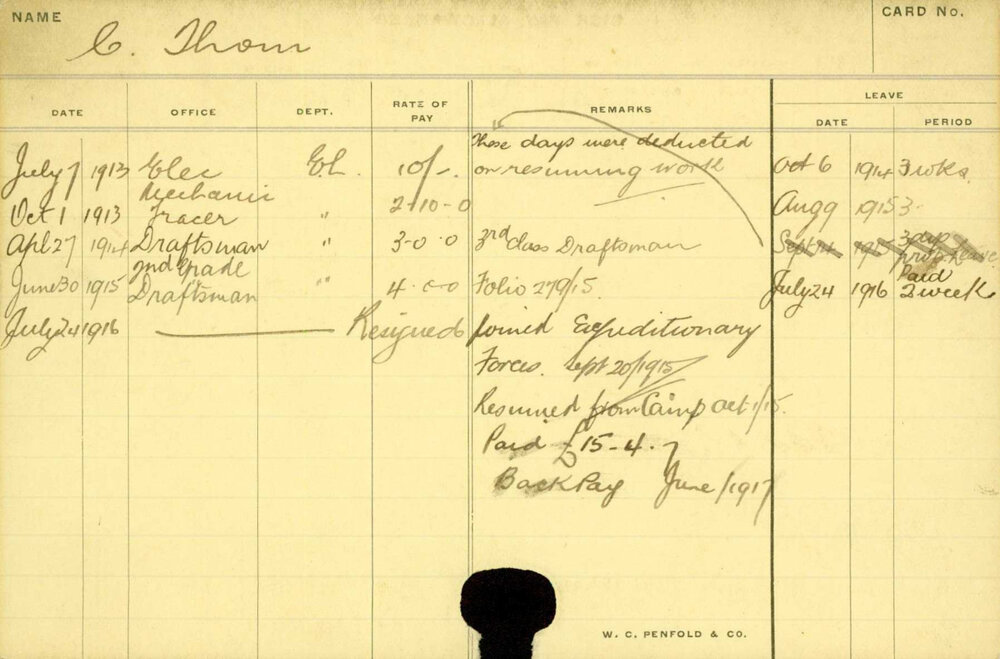 NAME
C. Thom
CARD No.
DATE OFFICE DEPT. RATE OF PAY REMARKS LEAVE
DATE PERIOD
These days were deducted
on resuming work
July 7 1913 Elec Mechanic El. 10/-. Oct 6 1914 3 wks.
Oct 1 1913 Tracer " 2-10-0 Aug 9 1915 3
Apl 27 1914 Draftsman " 3-0-0 3rd Class Draftsman Sept 3 days leave
June 30 1915 2nd Grade Draftsman " 4-0-0 Folio 279/15. July 24 1916 Paid 2 week
July 24 1916 Resigned Joined Expeditionary
Forces. Sept 20/1915
Resumed from Camp Oct 1/15.
Paid £15-4.7
Back Pay June/1917
W. C. PENFOLD & CO.